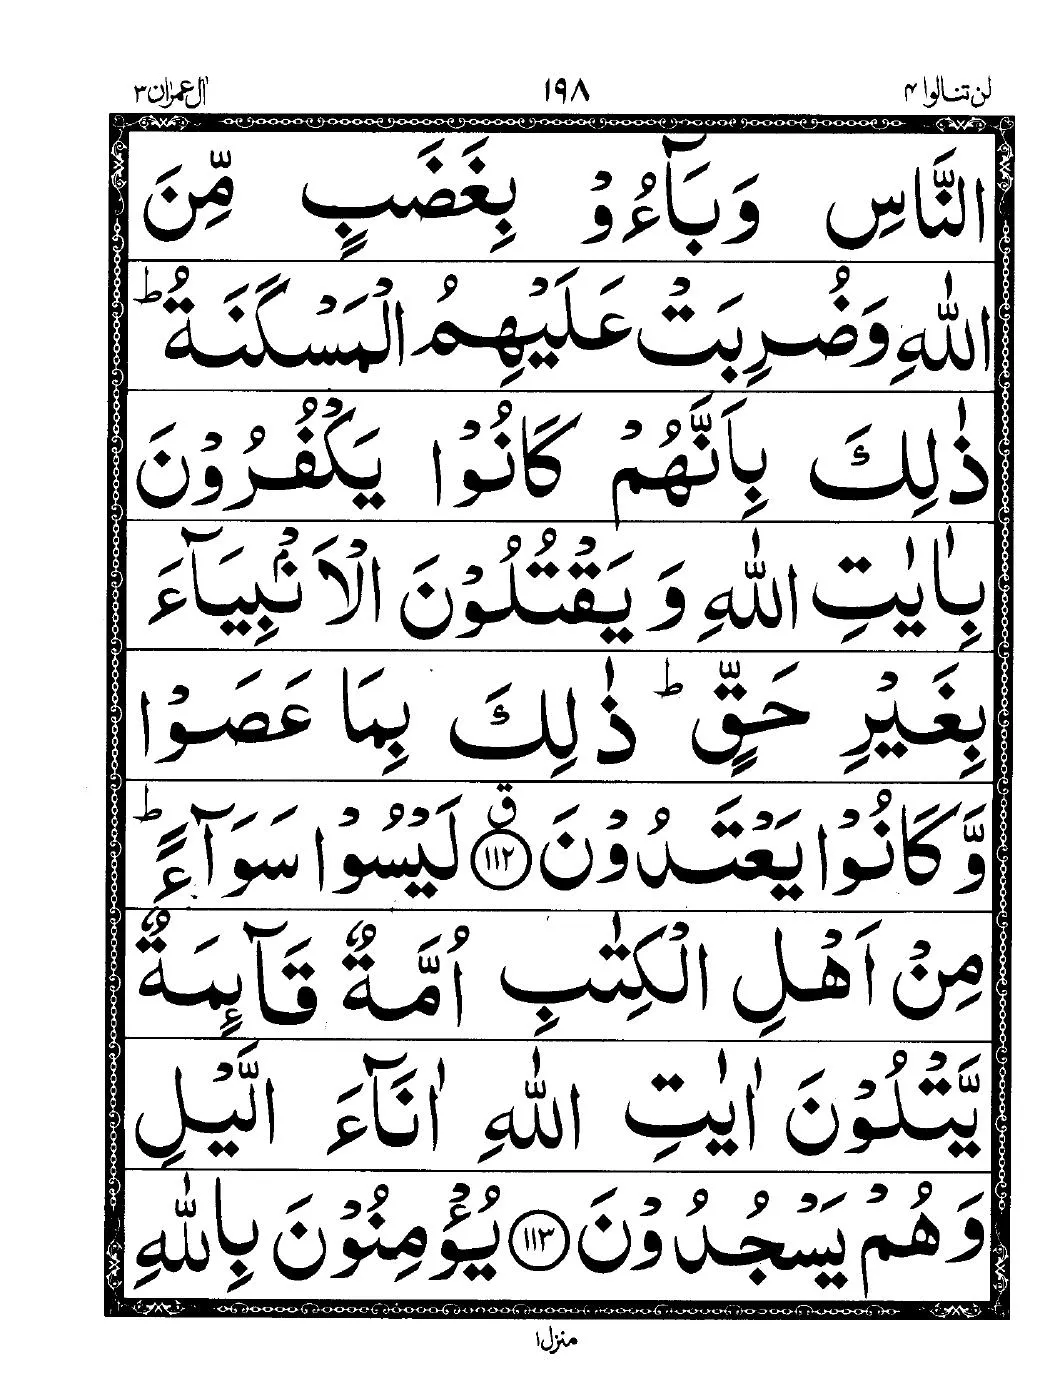 لن تنالوا ۴ ۱۹۸ اٰل عمرٰن ۳
النَّاسِ وَبَآءُوْ بِغَضَبٍ مِّنَ
اللّٰهِ وَضُرِبَتْ عَلَيْهِمُ الْمَسْكَنَةُ ؕ
ذٰلِكَ بِاَنَّهُمْ كَانُوْا يَكْفُرُوْنَ
بِاٰيٰتِ اللّٰهِ وَ يَقْتُلُوْنَ الْاَنْۢبِيَآءَ
بِغَيْرِ حَقٍّ ؕ ذٰلِكَ بِمَا عَصَوْا
وَّكَانُوْا يَعْتَدُوْنَ ق ۱۱۲ لَيْسُوْا سَوَآءً ؕ
مِنْ اَهْلِ الْكِتٰبِ اُمَّةٌ قَآئِمَةٌ
يَّتْلُوْنَ اٰيٰتِ اللّٰهِ اٰنَآءَ الَّيْلِ
وَهُمْ يَسْجُدُوْنَ ۱۱۳ يُؤْمِنُوْنَ بِاللّٰهِ
منزل ۱